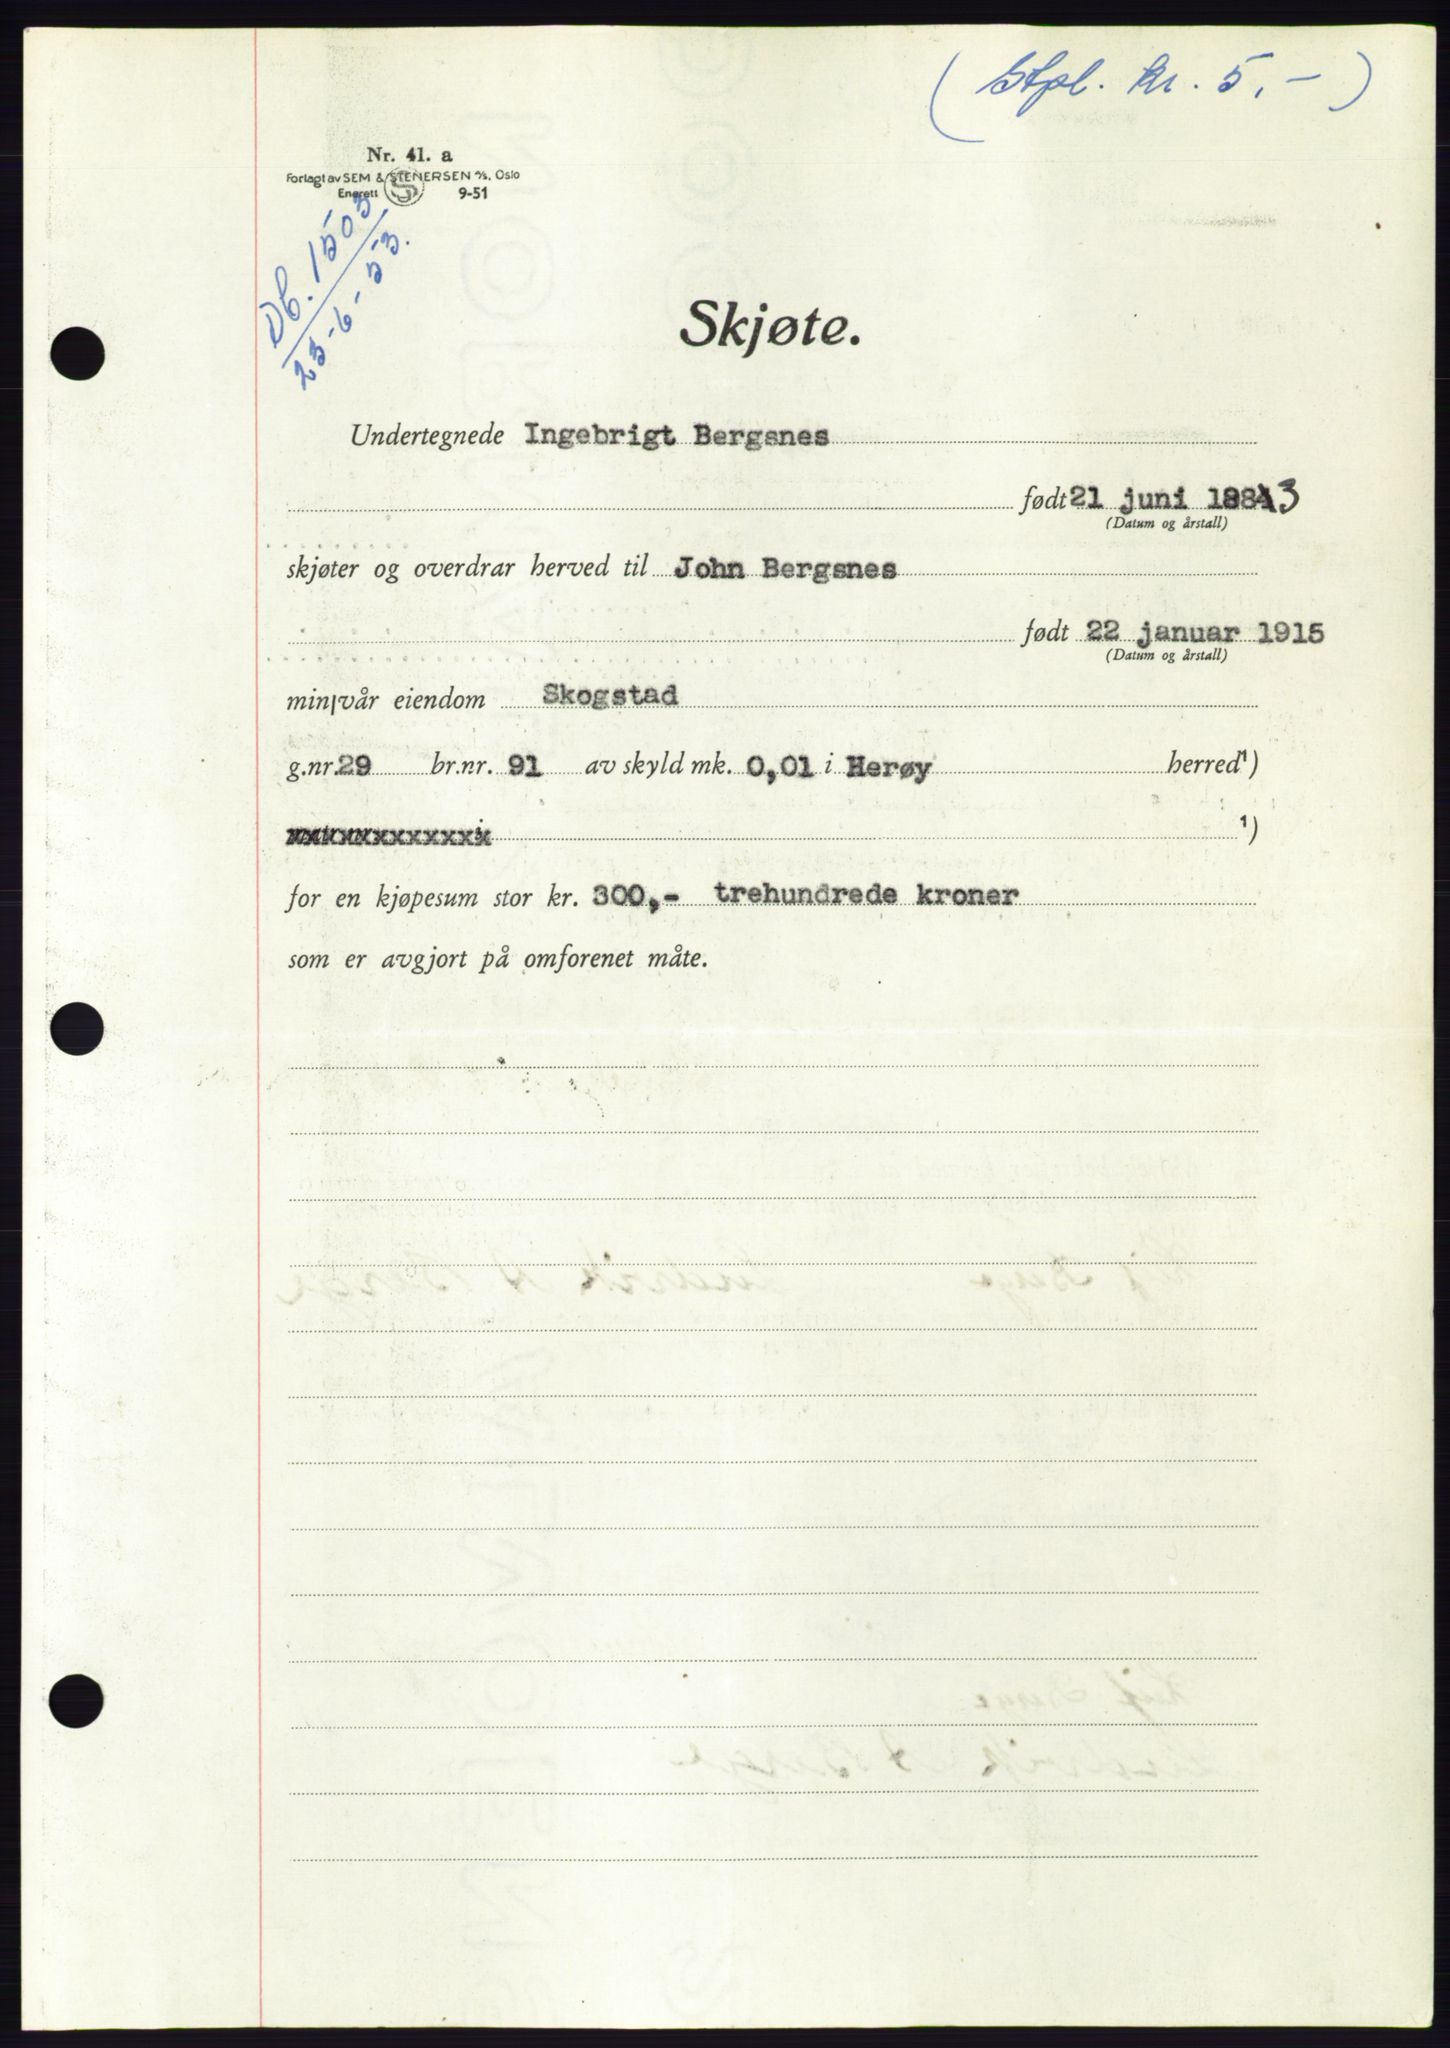 ( Stpl. kr. 5,- )
Nr. 41. a
Forlagt av SEM & STENERSEN A/S, Oslo
Enerett 9-51
Db. 1503
23-6-53.
Skjøte.
Undertegnede Ingebrigt Bergsnes
født 21 juni 1883
(Datum og årstall)
skjøter og overdrar herved til John Bergsnes
født 22 januar 1915
(Datum og årstall)
min/vår eiendom Skogstad
g.nr. 29 br.nr. 91 av skyld mk. 0,01 i Herøy herred¹)
xxxxxxxxxxxxx ¹)
for en kjøpesum stor kr. 300,- trehundrede kroner
som er avgjort på omforenet måte.